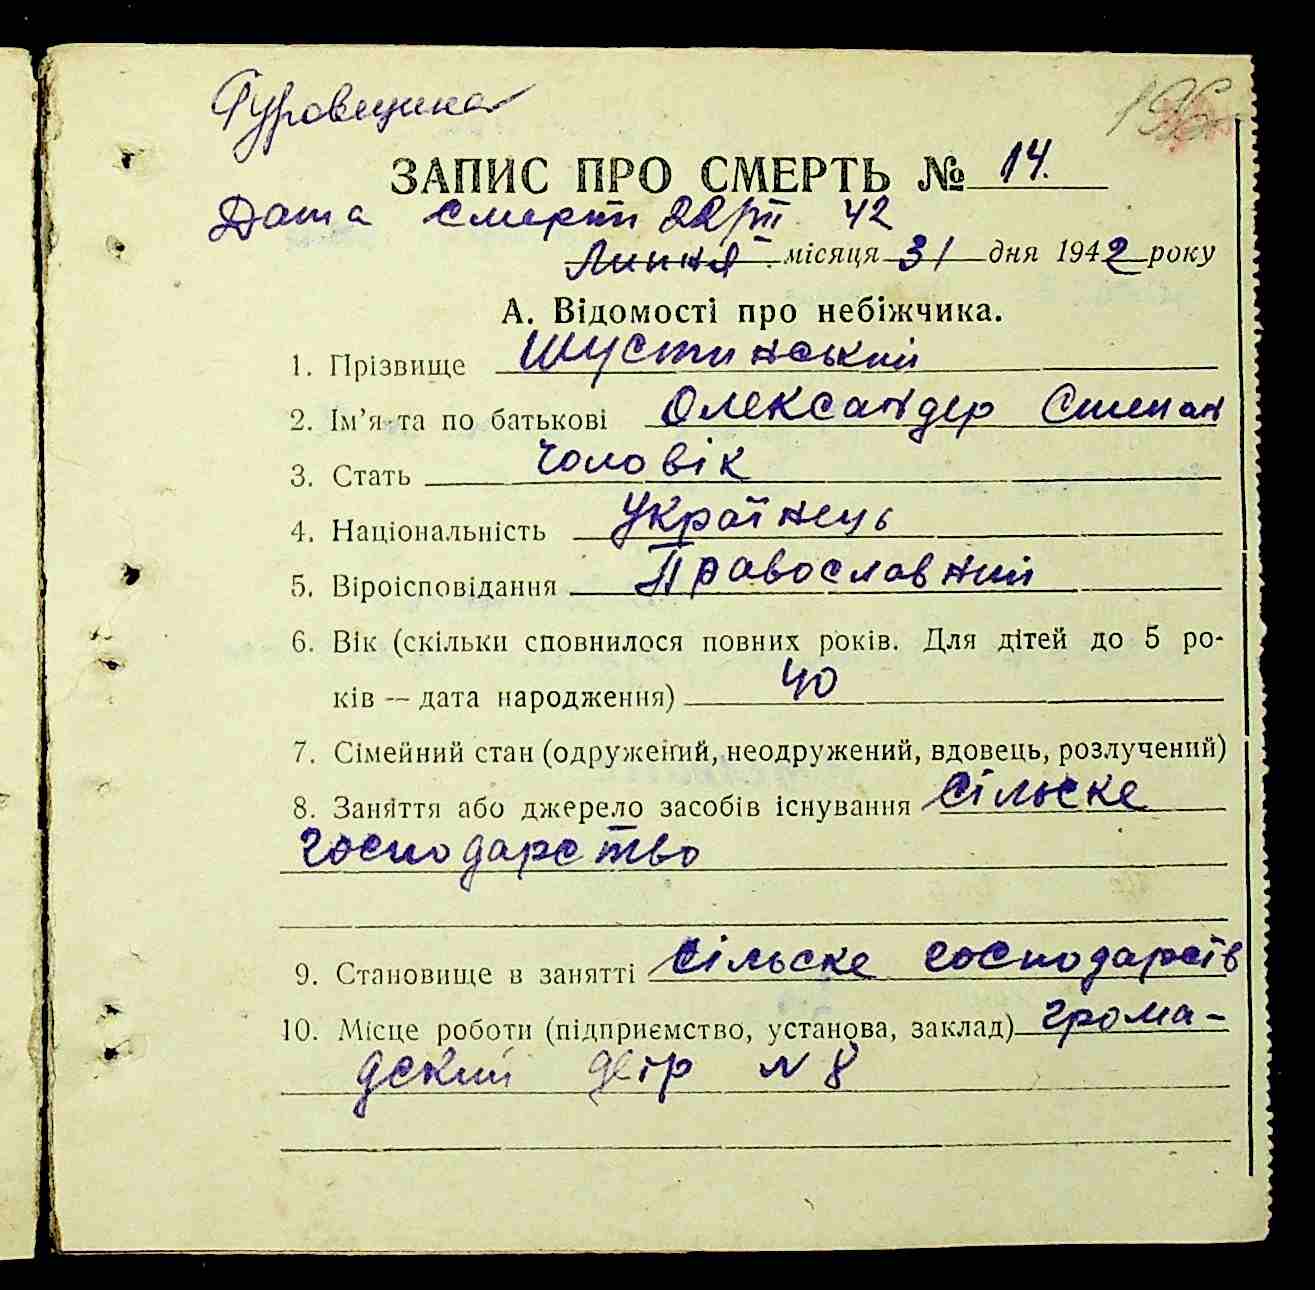 Гуровщина
196
ЗАПИС ПРО СМЕРТЬ № 14.
Дата смерти 22/III 42
Липня місяця 31 дня 1942 року
А. Відомості про небіжчика.
1. Прізвище Шустинський
2. Ім'я та по батькові Олександер Степан
3. Стать Чоловік
4. Національність Українець
5. Віроісповідання Православний
6. Вік (скільки сповнилося повних років. Для дітей до 5 ро-
ків — дата народження) 40
7. Сімейний стан (одружений, неодружений, вдовець, розлучений)
8. Заняття або джерело засобів існування Сільске
господарство
9. Становище в занятті сільске господарств
10. Місце роботи (підприємство, установа, заклад) грома-
дский двір N 8